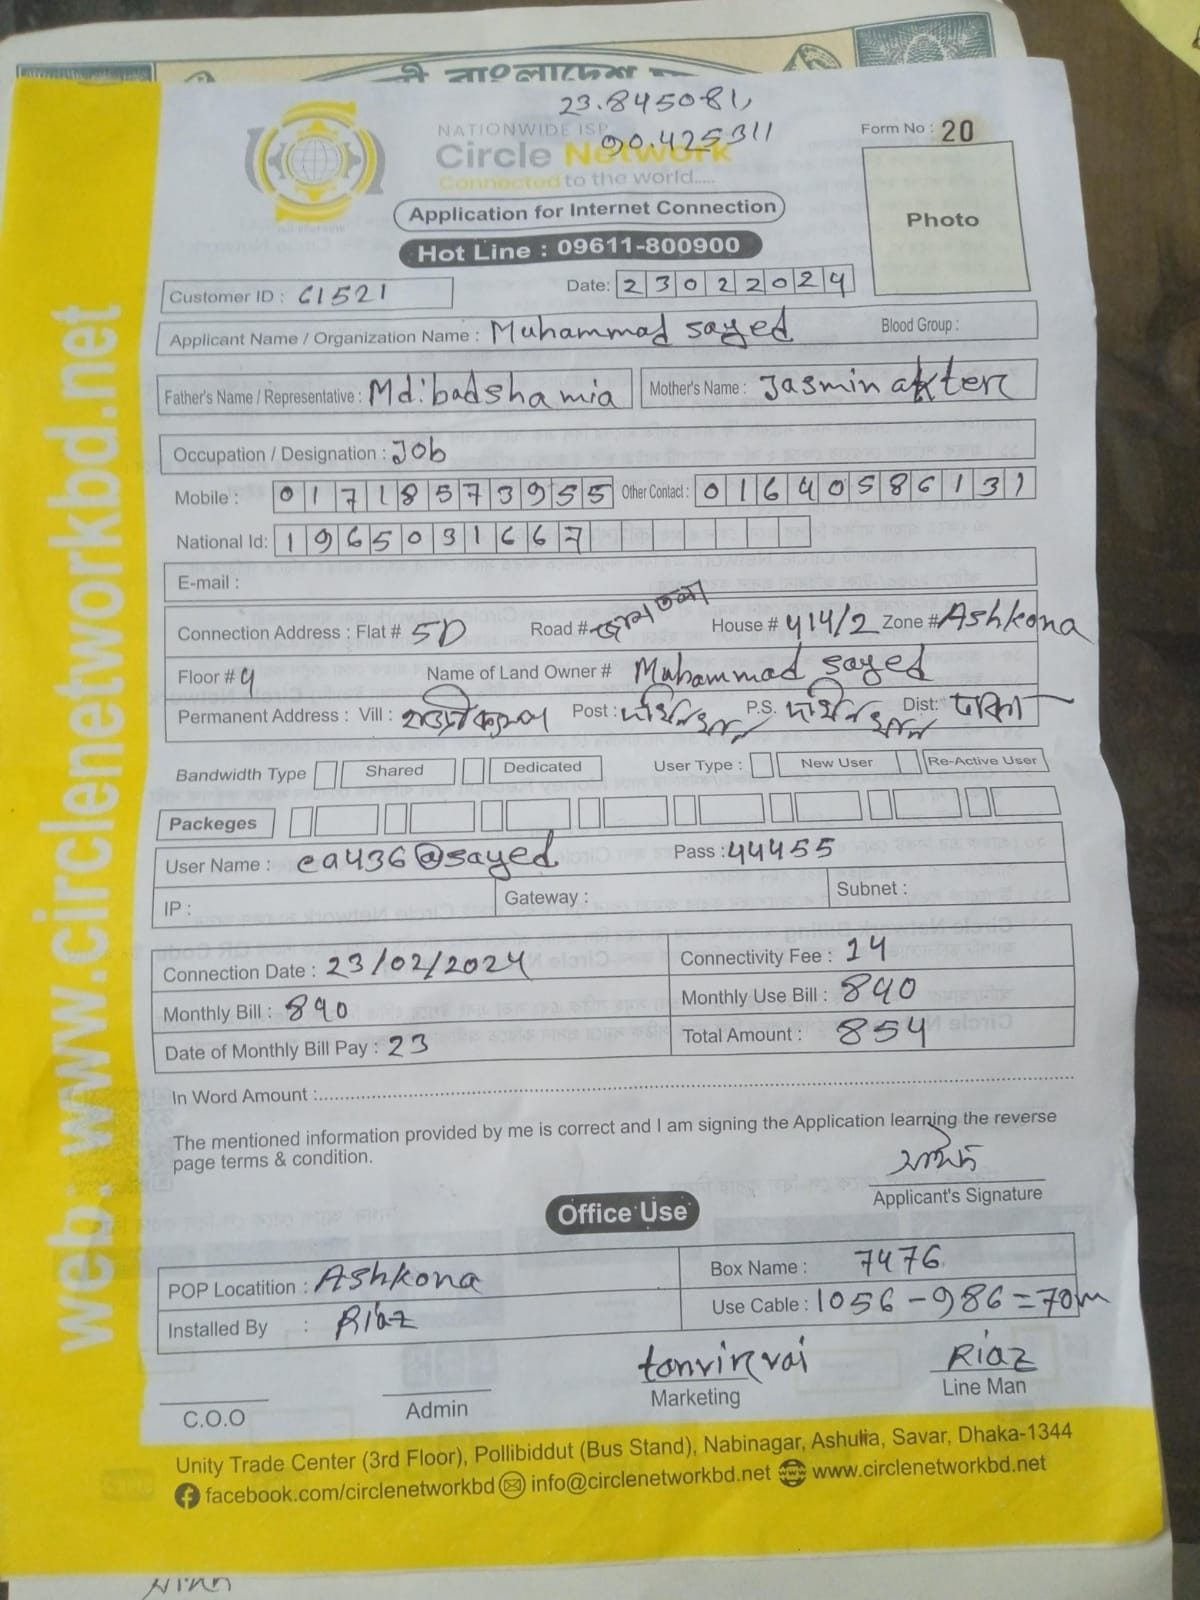 বাংলাদেশ
23.845081,
90.425311
NATIONWIDE ISP
Circle Network
Connected to the world.....
Form No : 20
Photo
Application for Internet Connection
Hot Line : 09611-800900
Customer ID : C1521
Date: 23022024
Applicant Name / Organization Name : Muhammad sayed
Blood Group :
Father's Name / Representative : Md: badsha mia
Mother's Name : Jasmin akter
Occupation / Designation : Job
Mobile : 01718573955 Other Contact : 01640586131
National Id: 1965031667
E-mail :
Connection Address : Flat # 5D Road # House # 414/2 Zone # Ashkona
Floor # 4 Name of Land Owner # Muhammad sayed
Permanent Address : Vill : Post : দক্ষিনখান P.S. দক্ষিনখান Dist: ঢাকা
Bandwidth Type Shared Dedicated User Type : New User Re-Active User
Packeges
User Name : ea436@sayed Pass : 44455
IP : Gateway : Subnet :
Connection Date : 23/02/2024 Connectivity Fee : 14
Monthly Bill : 840 Monthly Use Bill : 840
Date of Monthly Bill Pay : 23 Total Amount : 854
In Word Amount :
The mentioned information provided by me is correct and I am signing the Application learning the reverse
page terms & condition.
Applicant's Signature
Office Use
POP Locatition : Ashkona Box Name : 7476
Installed By : Riaz Use Cable : 1056 - 986 = 70m
tanvir vai Riaz
C.O.O Admin Marketing Line Man
Unity Trade Center (3rd Floor), Pollibiddut (Bus Stand), Nabinagar, Ashulia, Savar, Dhaka-1344
facebook.com/circlenetworkbd info@circlenetworkbd.net www.circlenetworkbd.net
web: www.circlenetworkbd.net